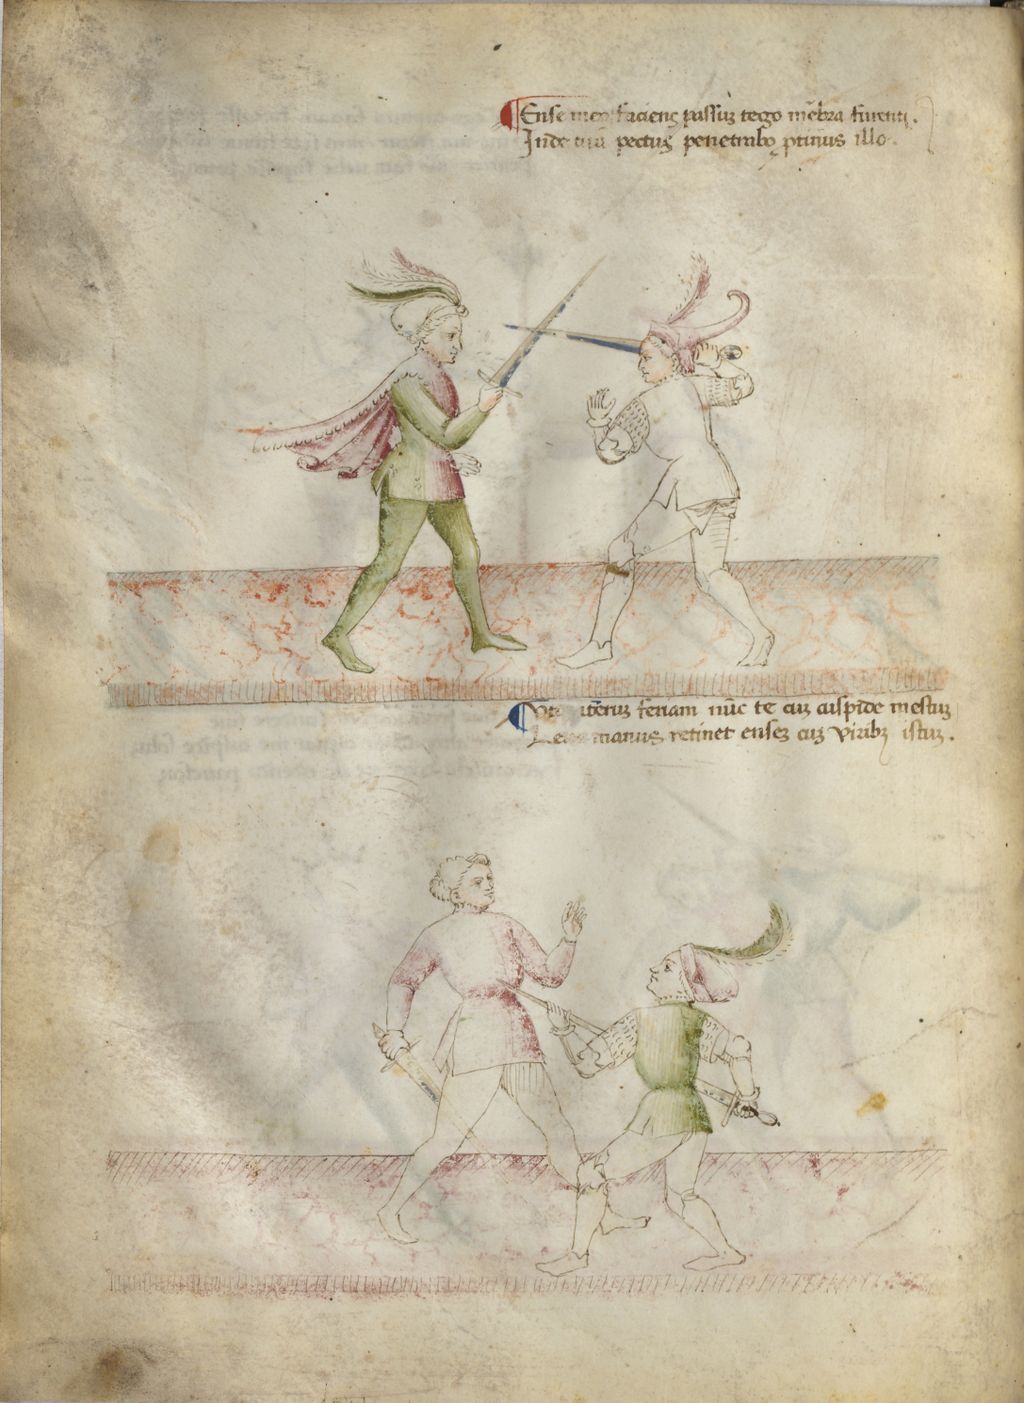 Ense meo faciens passuʒ tego mēbra furenti.
Inde tuū pectus penetrabo ꝓtinus illo.
iteruʒ feriam nūc te cuʒ cuspide mestuʒ
Leua manus retinet enseʒ cuʒ viribʒ istuʒ.